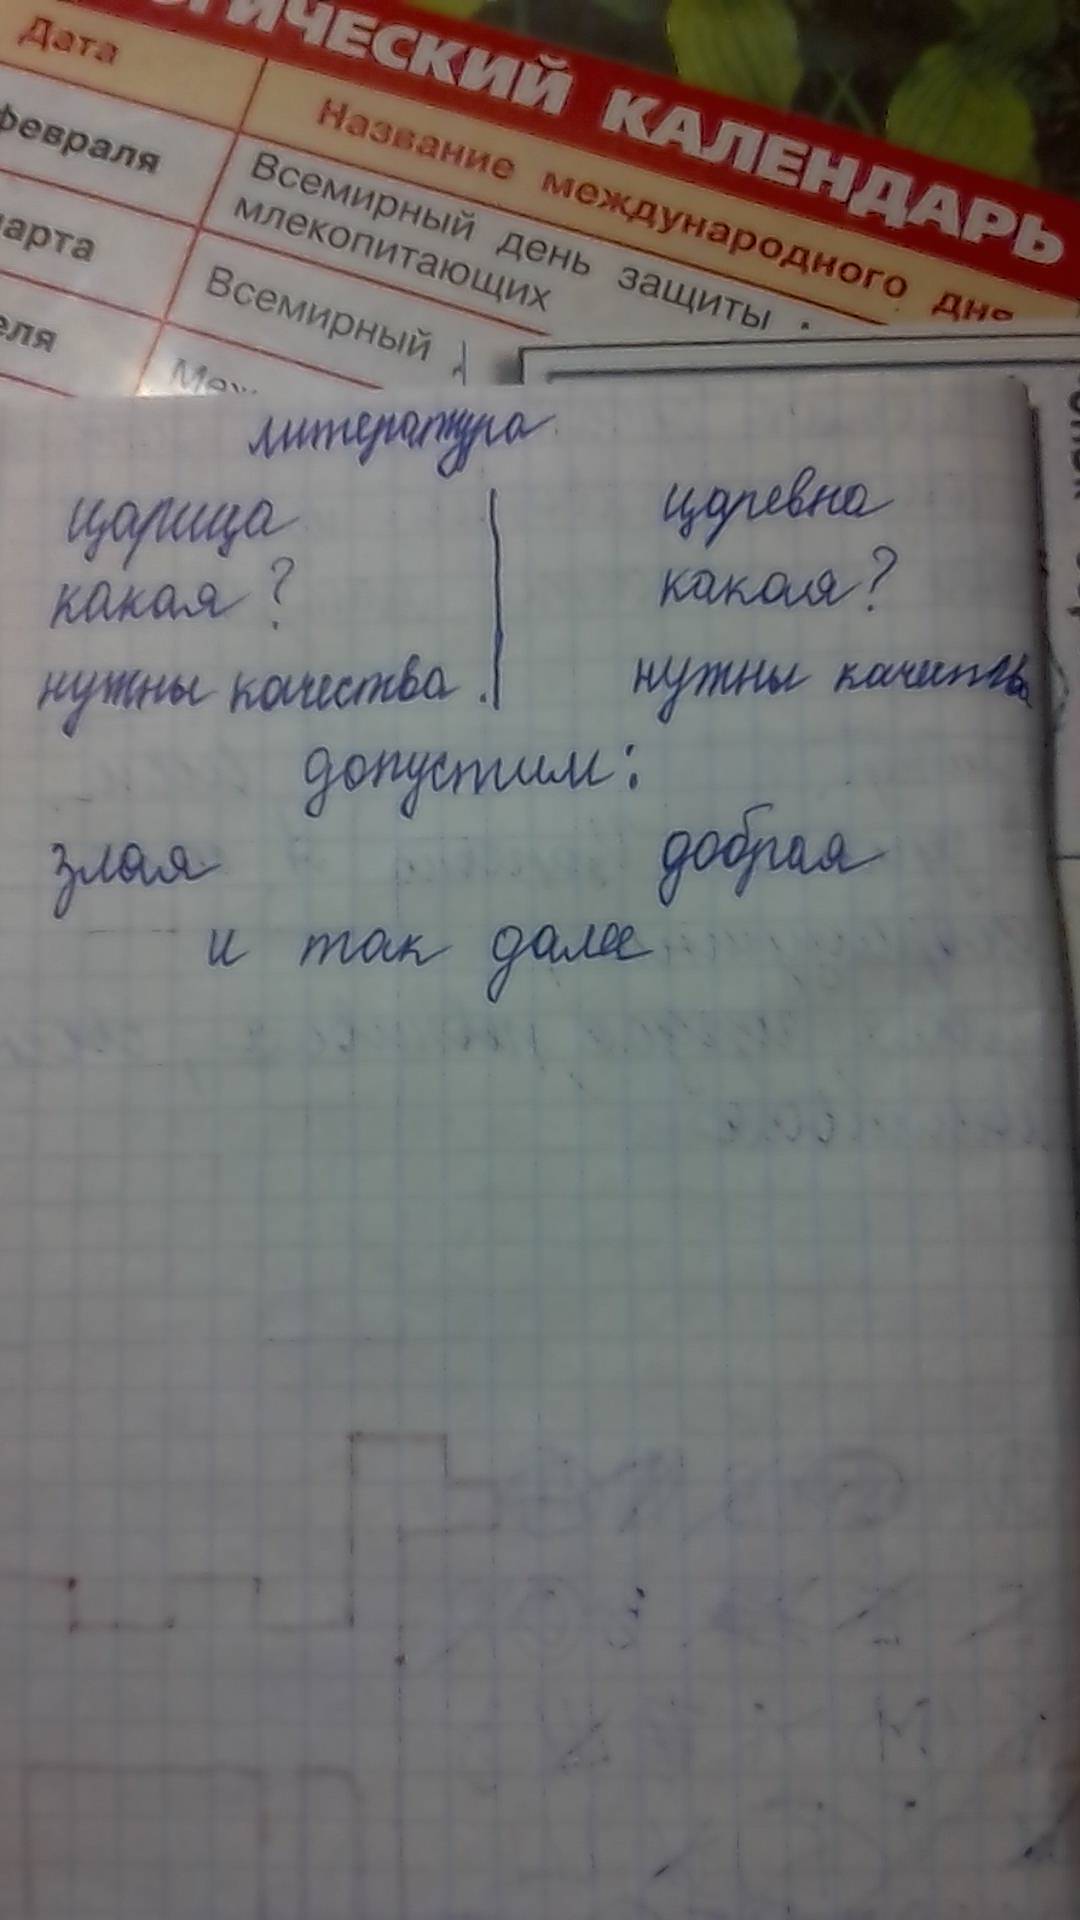 ГИЧЕСКИЙ КАЛЕНДАРЬ
Дата
Название международного дня
февраля
Всемирный день защиты
млекопитающих
марта
Всемирный
еля
Меж
литература
царица
царевна
какая?
какая?
нужны качества.
нужны качества
допустим:
злая
добрая
и так далее